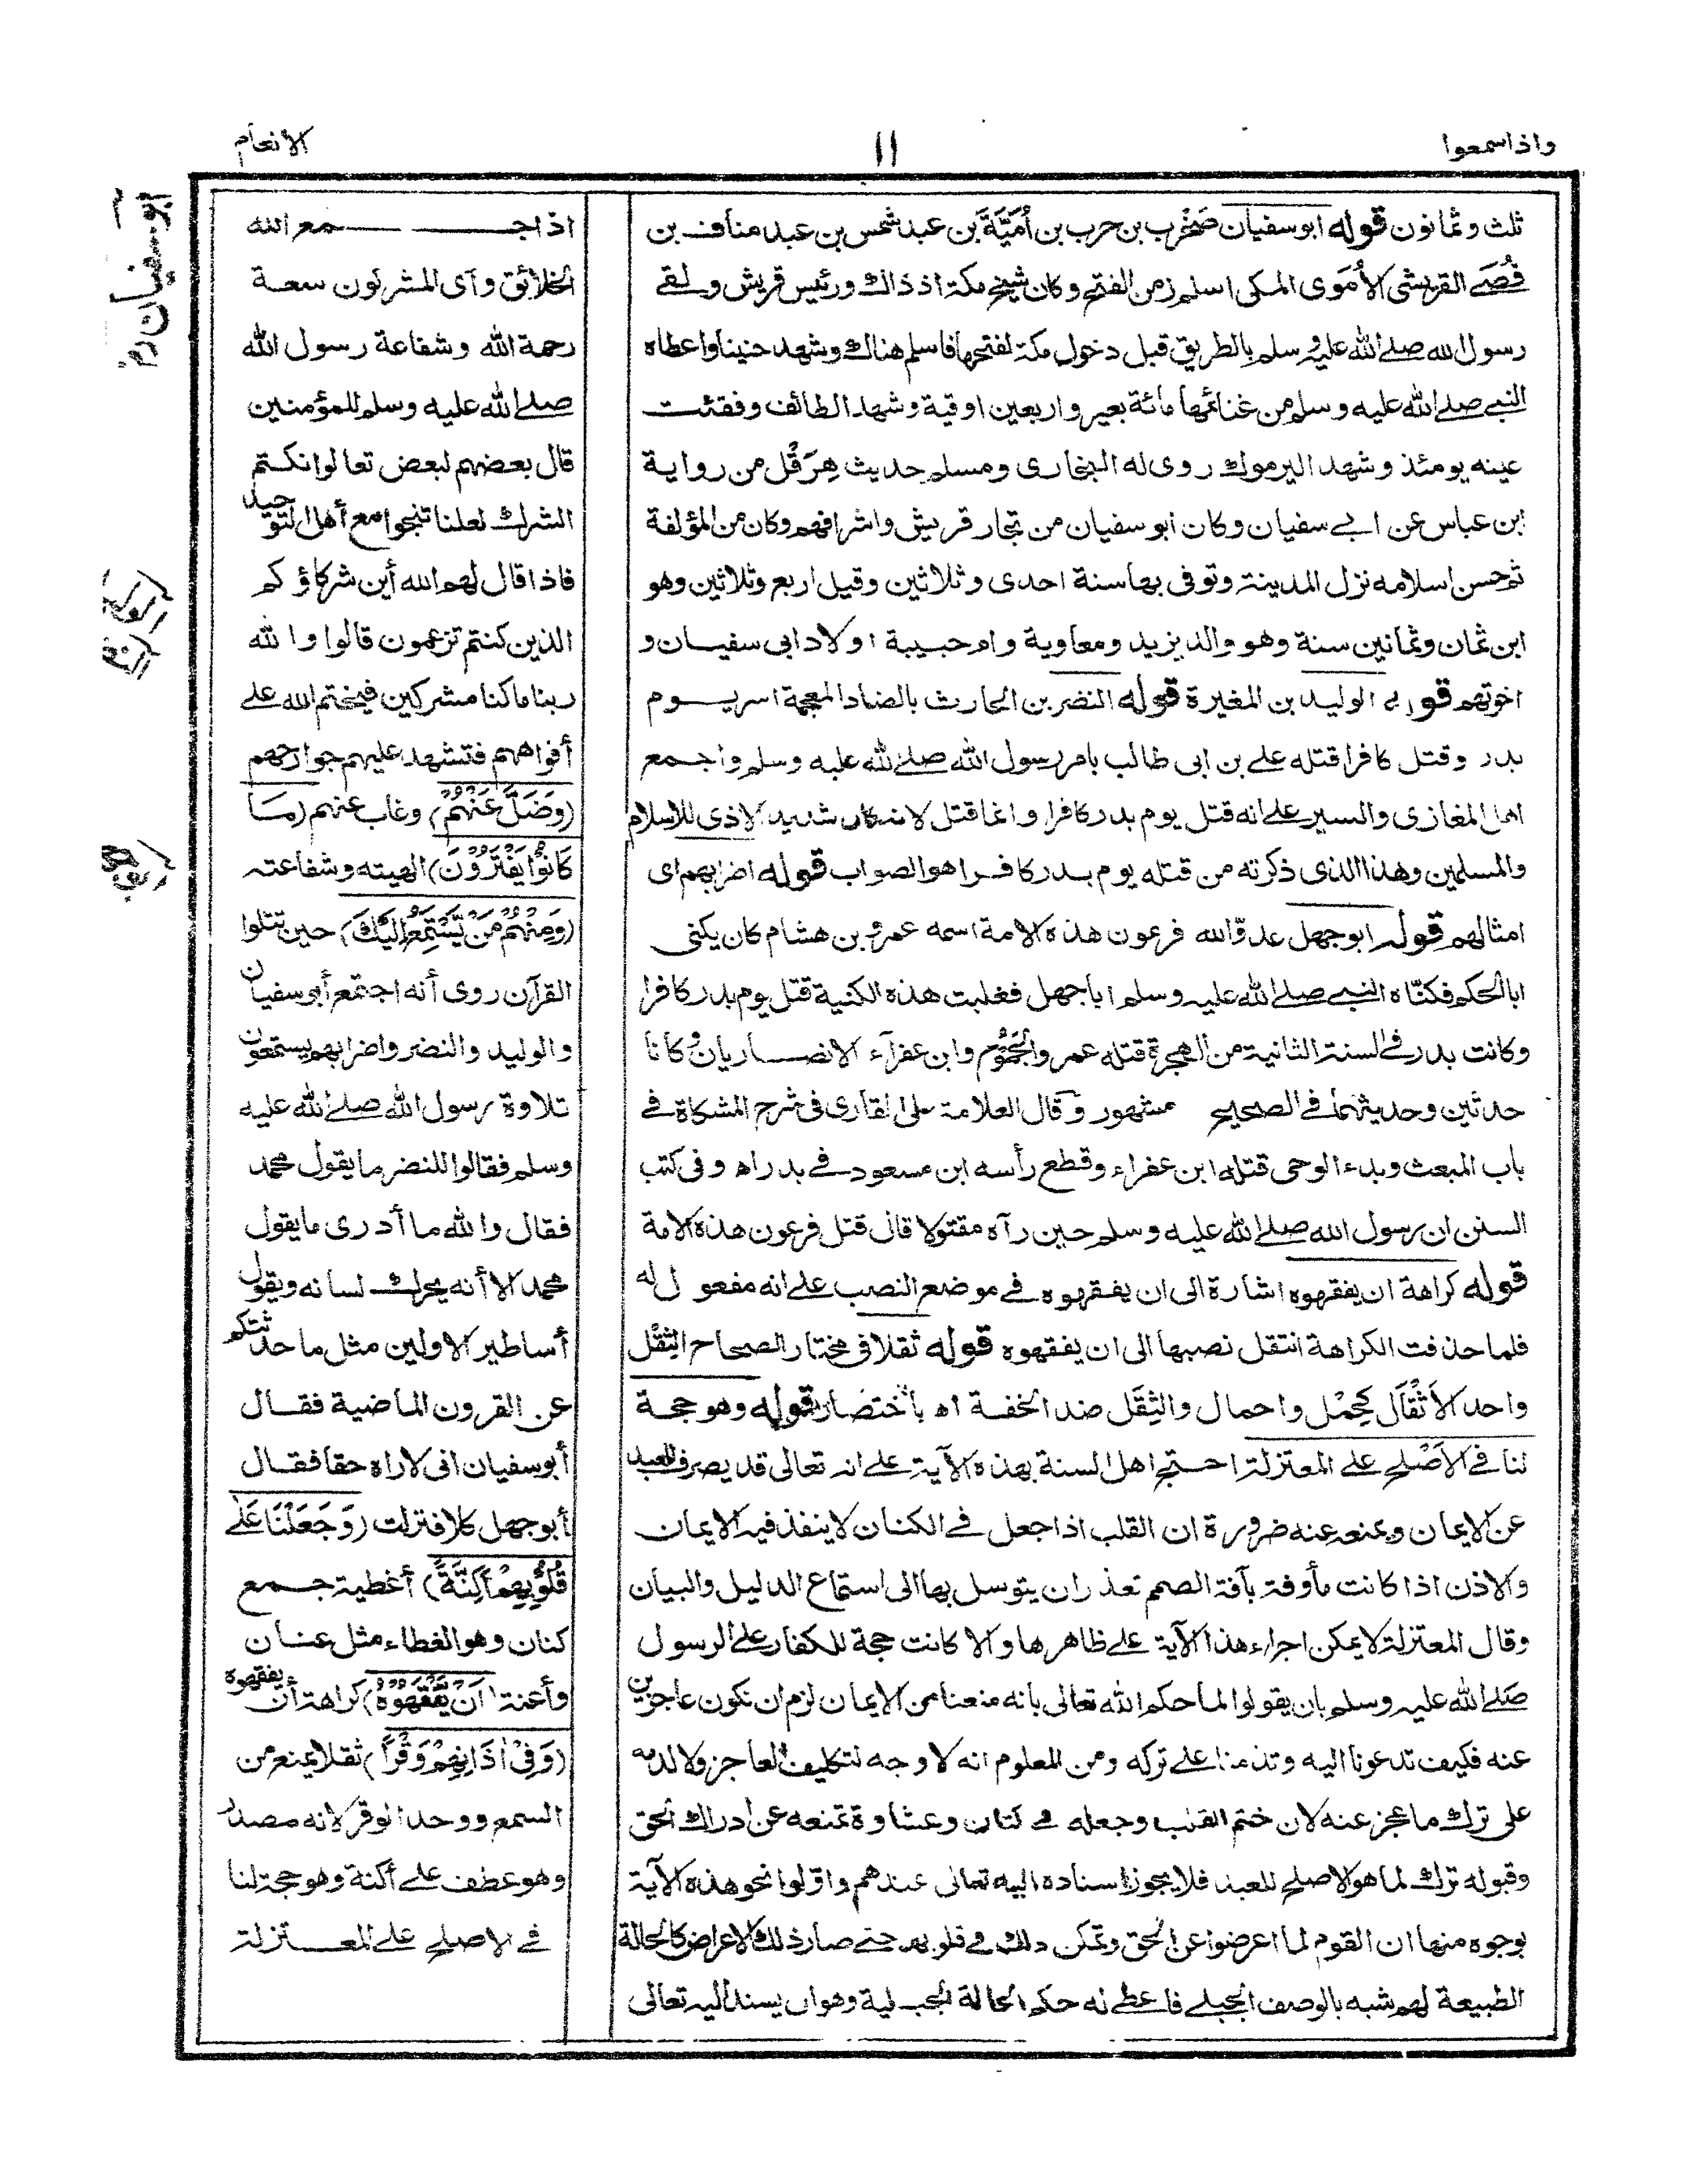 واذاسمعوا
١١
الانعام
ثلث وثمانون قوله ابوسفيان صَخْرب بن حرب بن أُمَيَّةَ بن عبد شمس بن عبد مناف بن
قُصَے القريشى الاُمَوى المكى اسلم زمن الفتح وكان شيخ مكة اذ ذاك ورئيس قريش ولقے
رسول الله صلے الله عليه وسلم بالطريق قبل دخول مكة لفتحها فاسلم هناك وشهد حنينا واعطاه
النبے صلے الله عليه وسلم من غنائمها مائة بعير واربعين اوقية وشهد الطائف وفقئت
عينه يومئذ وشهد اليرموك روى له البخارى ومسلم حديث هِرَقْل من رواية
ابن عباس عن ابے سفيان وكان ابو سفيان من تجار قريش واشرافهم وكان من المؤلفة
ثم حسن اسلامه نزل المدينة وتوفى بها سنة احدى وثلاثين وقيل اربع وثلاثين وهو
ابن ثمان وثمانين سنة وهو والد يزيد ومعاوية وام حبيبة اولاد ابى سفيان و
اخوتهم قوله الوليد بن المغيرة قوله النضر بن الحارث بالضاد المعجمة اسر يوم
بدر وقتل كافرا قتله علے بن ابى طالب بامر رسول الله صلے الله عليه وسلم واجمع
اهل المغازى والسير علے انه قتل يوم بدر كافرا وانما قتل لانه كان شديد الاذى للاسلام
والمسلمين وهذا الذى ذكرته من قتله يوم بدر كافرا هو الصواب قوله اضرابهم اى
امثالهم قوله ابوجهل عدوّ الله فرعون هذه الامة اسمه عمرو بن هشام كان يكنى
ابا الحكم فكنّاه النبے صلے الله عليه وسلم اباجهل فغلبت هذه الكنية قتل يوم بدر كافرا
وكانت بدر فے السنة الثانية من الهجرة قتله عمرو الجموح وابن عفرآء الانصاريان وكانا
حدثين وحديثهما فے الصحيح مشهور وقال العلامة على القارى فى شرح المشكاة فے
باب المبعث وبدء الوحى قتله ابن عفراء وقطع رأسه ابن مسعود فے بدر اه وفى كتب
السنن ان رسول الله صلے الله عليه وسلم حين رآه مقتولا قال قتل فرعون هذه الامة
قوله كراهة ان يفقهوه اشارة الى ان يفقهوه فے موضع النصب علے انه مفعول له
فلما حذفت الكراهة انتقل نصبها الى ان يفقهوه قوله ثقلا فى مختار الصحاح الثِقْل
واحد الاَثْقَال كَحِمْل واحمال والثِقَل ضد الخفة اه باختصار قوله وهو حجة
لنا فے الاَصْلح علے المعتزلة احتج اهل السنة بهذه الآية علے انه تعالى قد يصرف العبد
عن الايمان ويمنعه عنه ضرورة ان القلب اذا جعل فے الكنان لا ينفذ فيه الايمان
والاذن اذا كانت مأوفة بآفة الصمم تعذر ان يتوسل بها الى استماع الدليل والبيان
وقال المعتزلة لا يمكن اجراء هذا الآية علے ظاهرها والا كانت حجة للكفار علے الرسول
صلے الله عليه وسلم بان يقولوا لما حكم الله تعالى بانه منعنا من الايمان لزم ان نكون عاجزين
عنه فكيف تدعونا اليه وتذمنا علے تركه ومن المعلوم انه لا وجه لتكليف العاجز ولا لذمه
على ترك ما عجز عنه لان ختم القلب وجعله فے كنان وغشاوة تمنعه عن ادراك الحق
وقبوله ترك لما هو الاصلح للعبد فلا يجوز اسناده اليه تعالى عندهم واوّلوا نحو هذه الآية
بوجوه منها ان القوم لما اعرضوا عن الحق وتمكن ذلك فے قلوبهم حتے صار ذلك الاعراض كالحالة
الطبيعة لهم شبه بالوصف الجبلے فاعطے له حكم الحالة الجبلية وهو ان يسند اليه تعالى
اذا جمع الله
الخلائق ورآى المشركون سعة
رحمة الله وشفاعة رسول الله
صلے الله عليه وسلم للمؤمنين
قال بعضهم لبعض تعالوا نكتم
الشرك لعلنا ننجوا مع أهل التوحيد
فاذا قال لهم الله أين شركاؤكم
الذين كنتم تزعمون قالوا والله
ربنا ما كنا مشركين فيختم الله علے
أفواههم فتشهد عليهم جوارحهم
(وَضَلَّ عَنْهُمْ) وغاب عنهم (مَا
كَانُوْا يَفْتَرُوْنَ) الهيته وشفاعته
(وَمِنْهُمْ مَّنْ يَّسْتَمِعُ اِلَيْكَ) حين تتلوا
القرآن روى أنه اجتمع أبو سفيان
والوليد والنضر واضرابهم يستمعون
تلاوة رسول الله صلے الله عليه
وسلم فقالوا للنضر ما يقول محمد
فقال والله ما أدرى ما يقول
محمد الا أنه يحرك لسانه ويقول
أساطير الاولين مثل ما حدثتكم
عن القرون الماضية فقال
أبوسفيان انى لاراه حقا فقال
أبوجهل كلا فنزلت (وَجَعَلْنَا عَلٰے
قُلُوْبِهِمْ اَكِنَّةً) أغطية جمع
كنان وهو الغطاء مثل عنان
وأعنة (اَنْ يَّفْقَهُوْهُ) كراهة أن يفقهوه
(وَفِيْ اٰذَانِهِمْ وَقْرًا) ثقلا يمنع من
السمع ووحد الوقر لانه مصدر
وهو عطف علے أكنة وهو حجة لنا
فے الاصلح علے المعتزلة
ابوسفيان رض
الوليد
النضر
ابوجهل